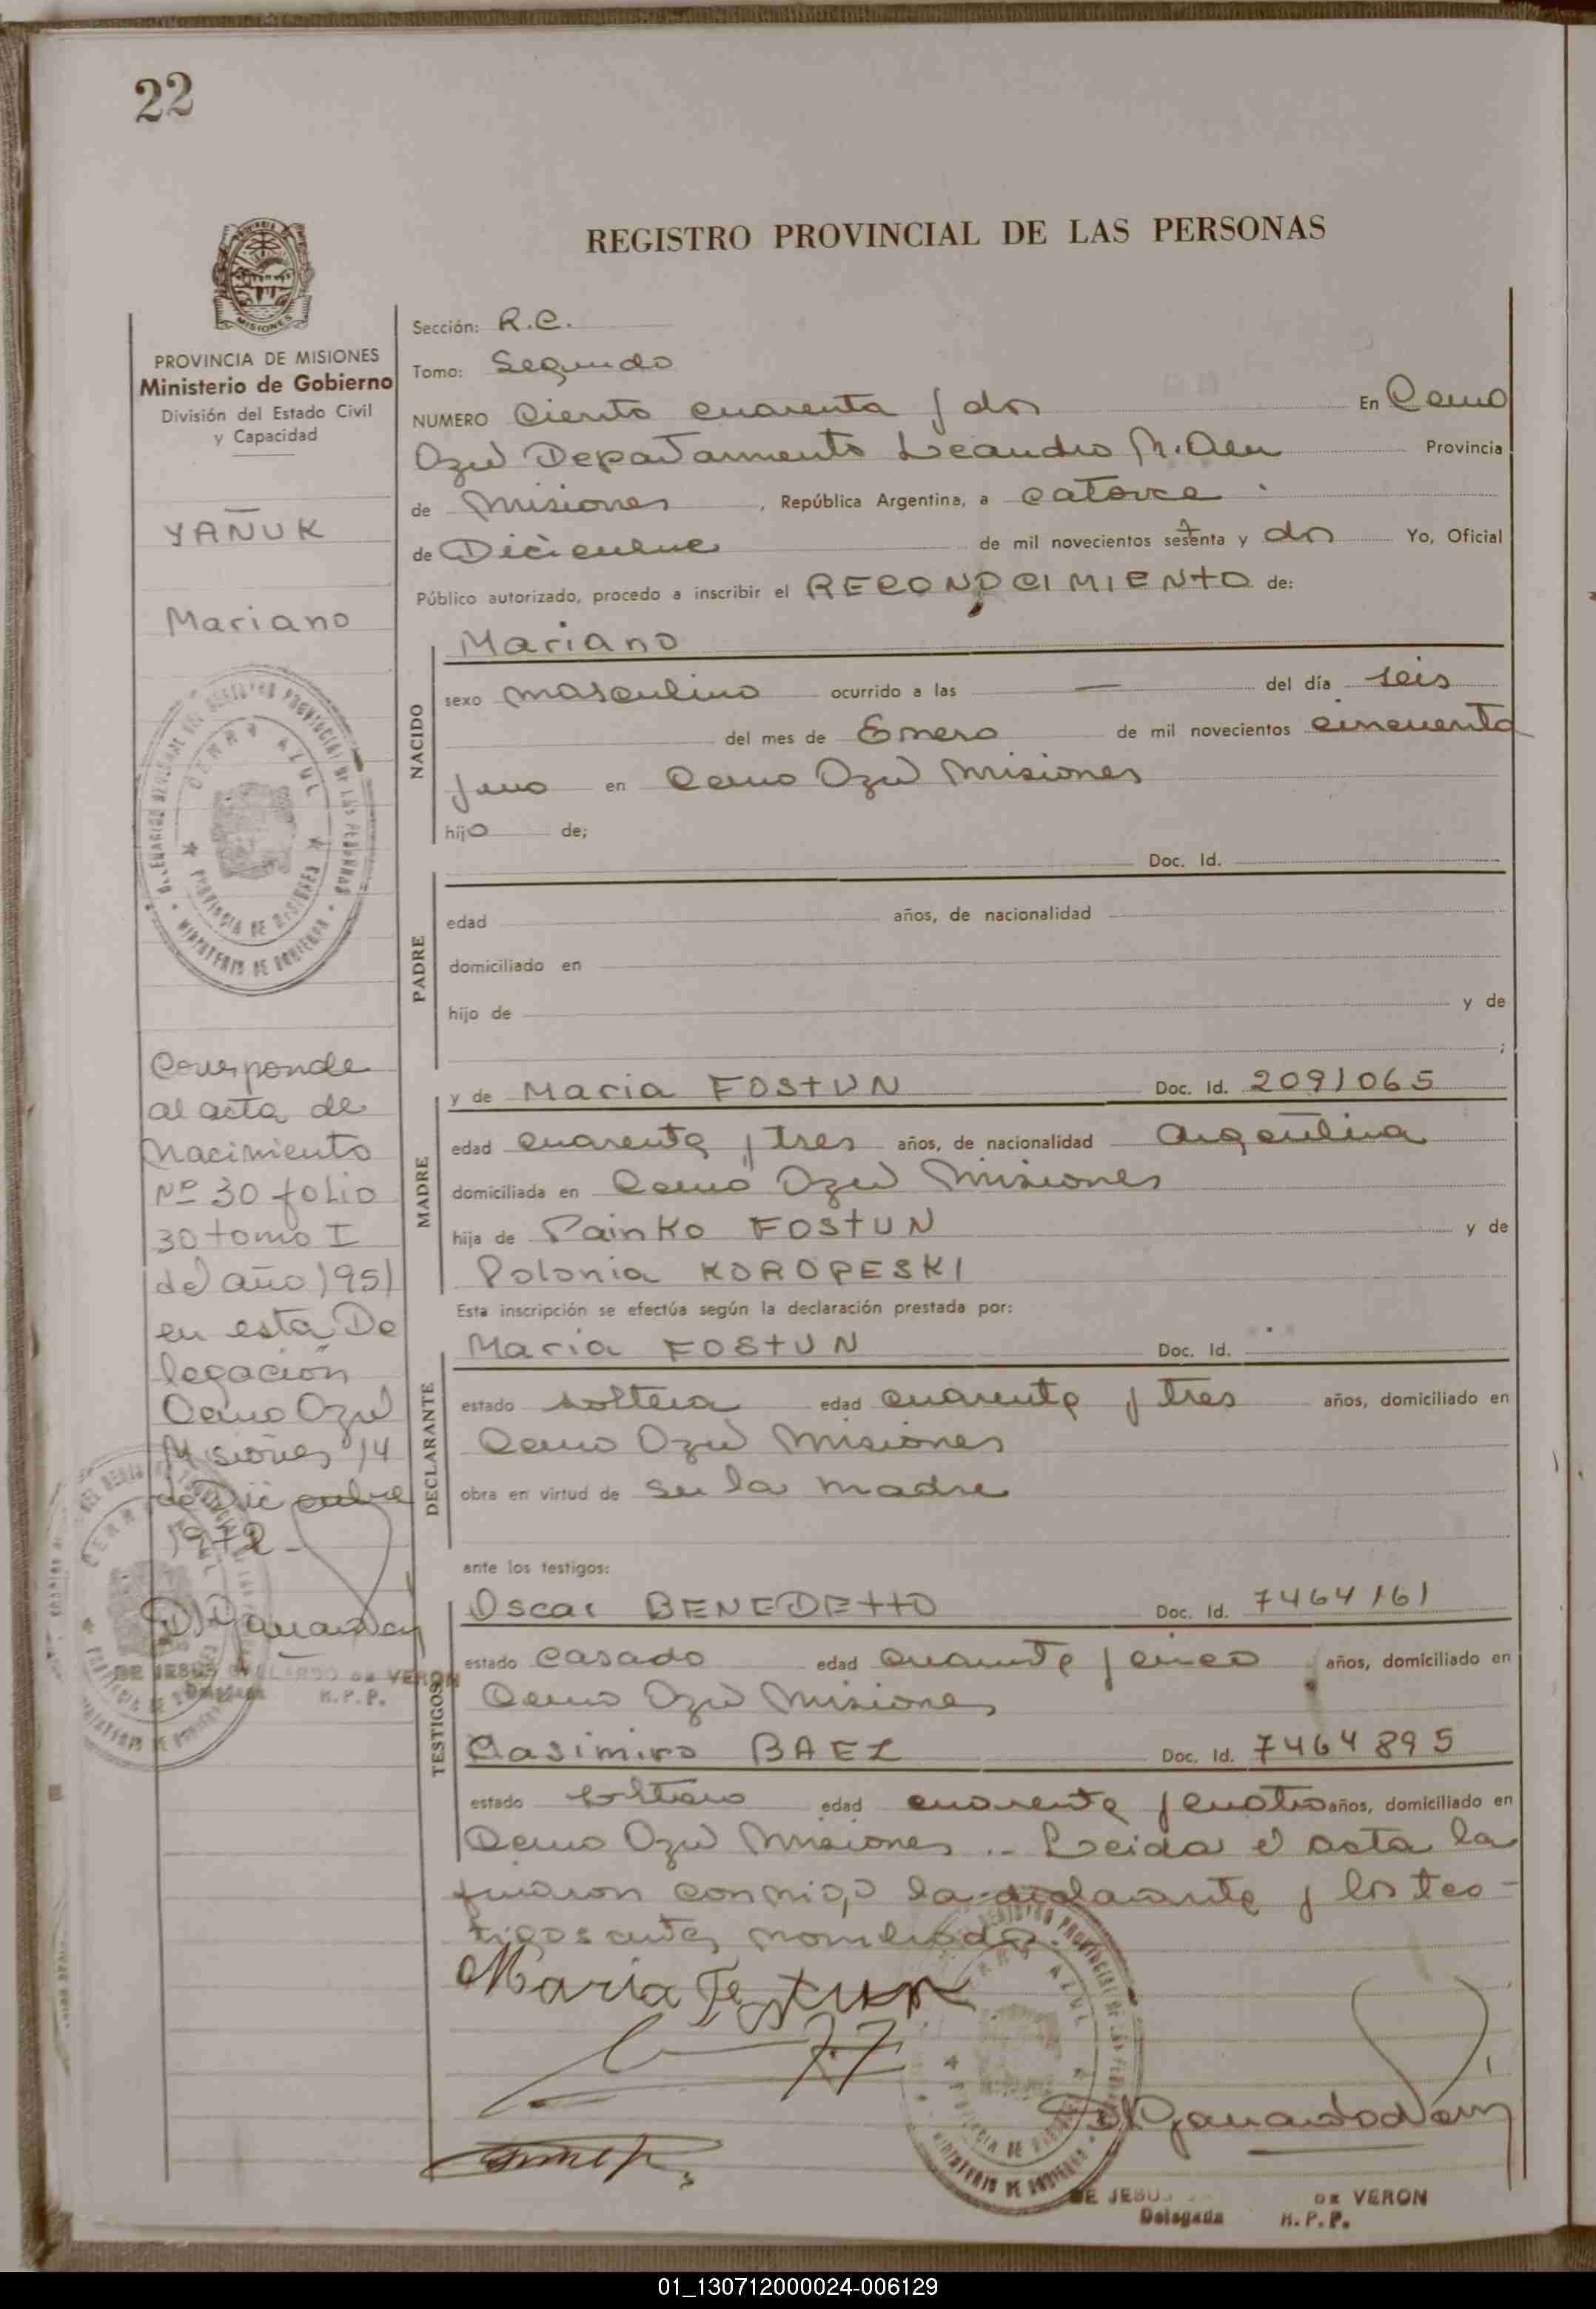 22
REGISTRO PROVINCIAL DE LAS PERSONAS
MISIONES
PROVINCIA DE MISIONES
Ministerio de Gobierno
División del Estado Civil
y Capacidad
YAÑUK
Mariano
Corresponde
al acta de
Nacimiento
Nº 30 folio
30 tomo I
del año 1951
en esta De
legación
Cerro Azul
Misiones 14
de Diciembre
1972-
DE JESUS GALLARDO DE VERON
Delegada
R.P.P.
Sección: R.C.
Tomo: Segundo
NUMERO Ciento cuarenta y dos En Cerro
Azul Departamento Leandro N. Alem Provincia
de Misiones, República Argentina, a catorce
de Diciembre de mil novecientos setenta y dos Yo, Oficial
Público autorizado, procedo a inscribir el RECONOCIMIENTO de:
NACIDO
Mariano
sexo masculino ocurrido a las — del día seis
del mes de Enero de mil novecientos cincuenta
y uno en Cerro Azul Misiones
hijo de;
PADRE
Doc. Id.
edad años, de nacionalidad
domiciliado en
hijo de y de
;
MADRE
y de Maria FOSTUN Doc. Id. 2091065
edad cuarenta y tres años, de nacionalidad Argentina
domiciliada en Cerro Azul Misiones
hija de Painko FOSTUN y de
Polonia KOROPESKI
Esta inscripción se efectúa según la declaración prestada por:
DECLARANTE
Maria FOSTUN Doc. Id.
estado soltera edad cuarenta y tres años, domiciliado en
Cerro Azul Misiones
obra en virtud de ser la madre
ante los testigos:
TESTIGOS
Oscar BENEDETTO Doc. Id. 7464161
estado casado edad cuarenta y cinco años, domiciliado en
Cerro Azul Misiones
Casimiro BAEZ Doc. Id. 7464895
estado soltero edad cuarenta y cuatro años, domiciliado en
Cerro Azul Misiones .- Leida el acta la
firmaron conmigo la declarante y los tes-
tigos antes nombrados.
Maria Festun
CERRO AZUL
PROVINCIA DE MISIONES
MINISTERIO DE GOBIERNO
DE JESUS DE VERON
Delegada R.P.P.
01_130712000024-006129